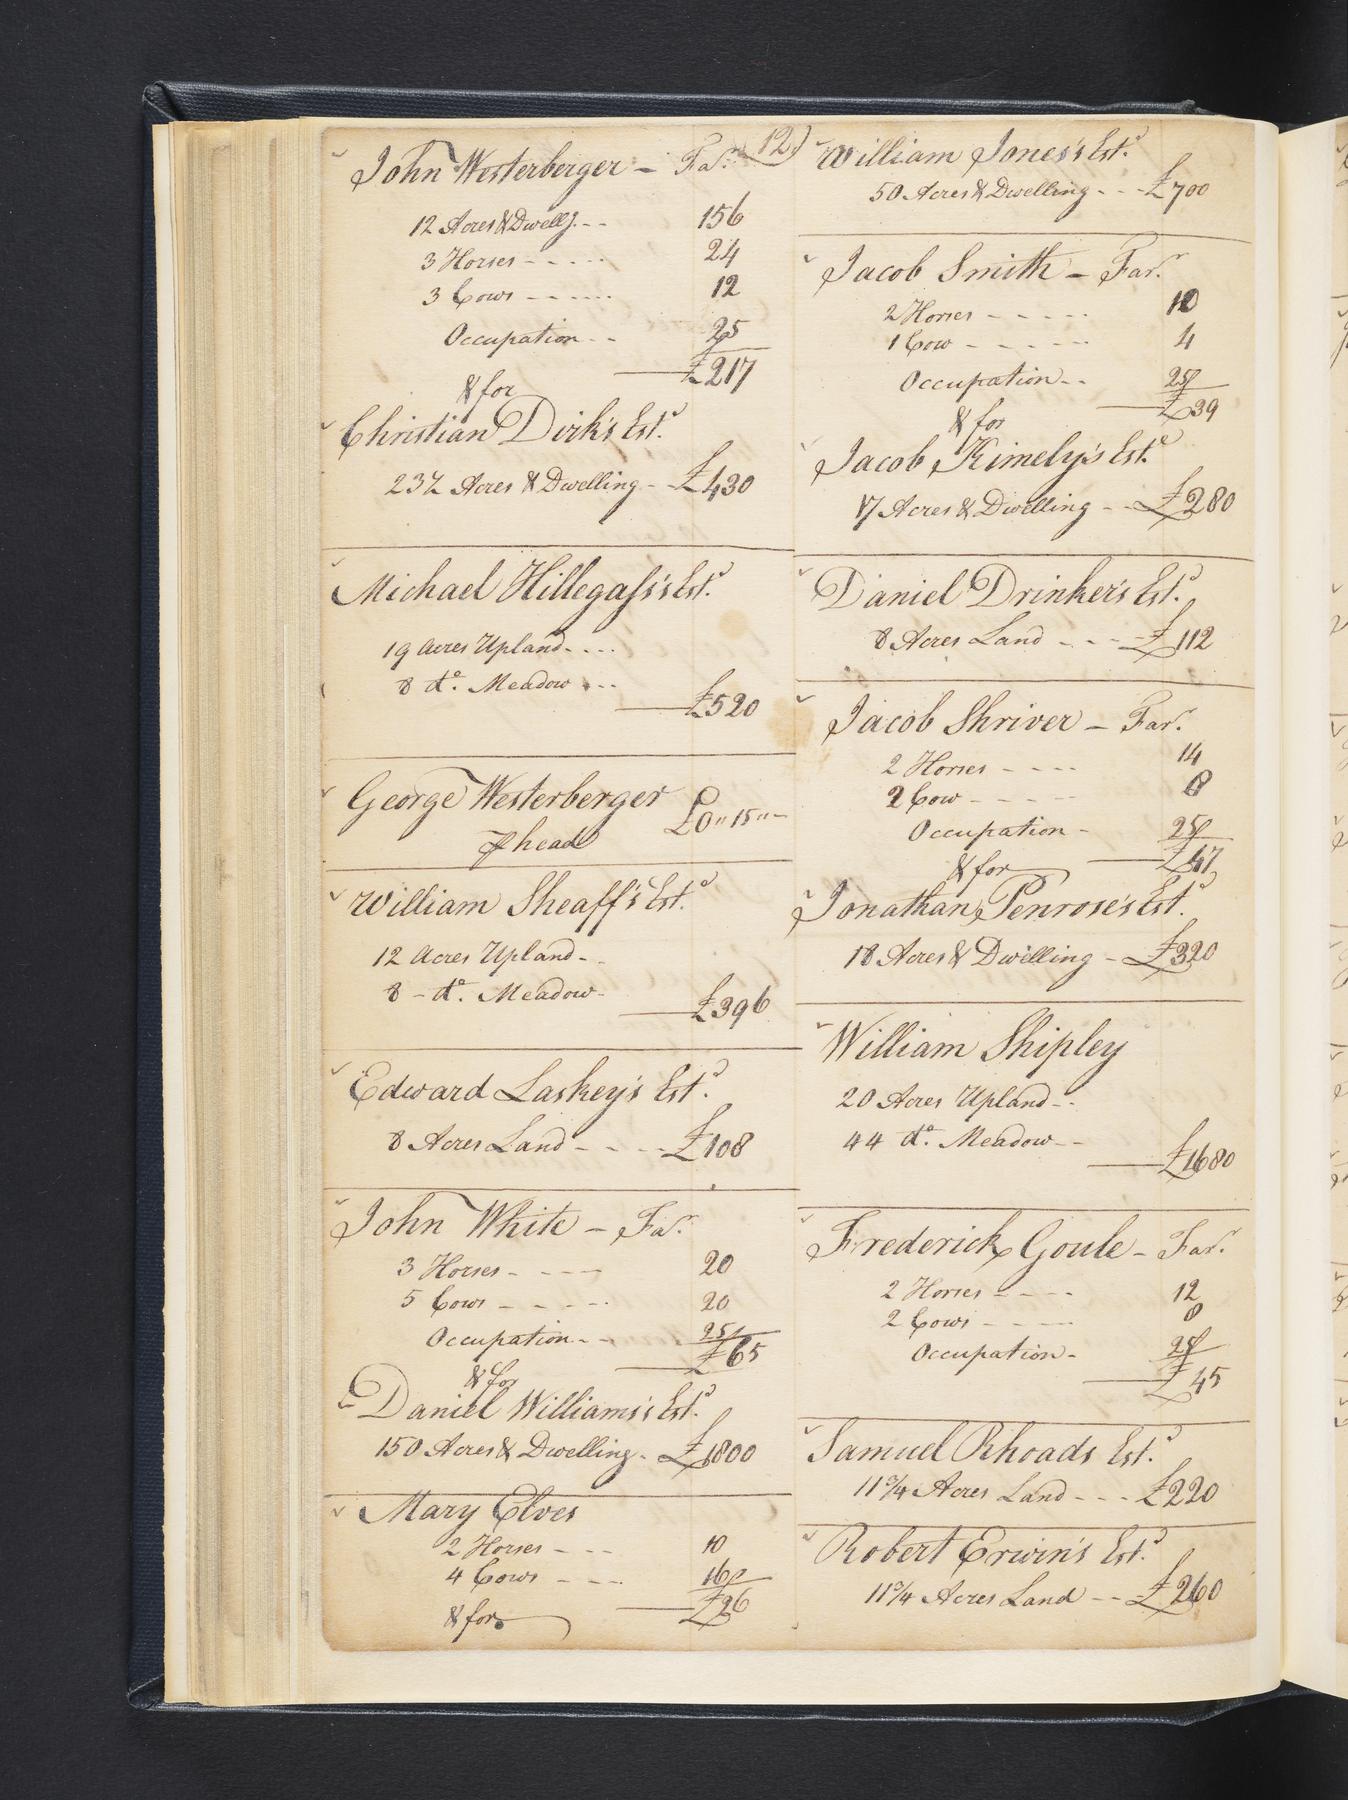 12)
John Westerberger - Far.
12 Acres & Dwellg. -- 156
3 Horses ----- 24
3 Cows ------ 12
Occupation -- 25
£217
& for
Christian Dirk's Estd.
23½ Acres & Dwelling -- £430
Michael Hillegass's Estd.
19 Acres Upland ----
8 do. Meadow ---
£520
George Westerberger £0"15"-
⅌ head
William Sheaff's Estd.
12 Acres Upland --
8 - do. Meadow -
£396
Edward Laskey's Estd.
8 Acres Land ---- £108
John White - Far.
3 Horses ---- 20
5 Cows ----- 20
Occupation -- 25
£65
& for
Daniel Williams's Estd.
150 Acres & Dwelling - £1800
Mary Elves
2 Horses --- 10
4 Cows ---- 16
£26
& for
William Jones's Estd.
50 Acres & Dwelling --- £700
Jacob Smith - Far.
2 Horses ----- 10
1 Cow ------ 4
Occupation -- 25
£39
& for
Jacob Kimely's Estd.
17 Acres & Dwelling -- £280
Daniel Drinker's Estd.
8 Acres Land ---- £112
Jacob Shriver - Far.
2 Horses ---- 14
2 Cow ----- 8
Occupation - 25
£47
& for
Jonathan Penrose's Estd.
18 Acres & Dwelling - £320
William Shipley
20 Acres Upland --
44 do. Meadow --
£1680
Frederick Goule - Far.
2 Horses ---- 12
2 Cows ---- 8
Occupation - 25
£45
Samuel Rhoads Estd.
11¾ Acres Land --- £220
Robert Erwin's Estd.
11¾ Acres Land -- £260